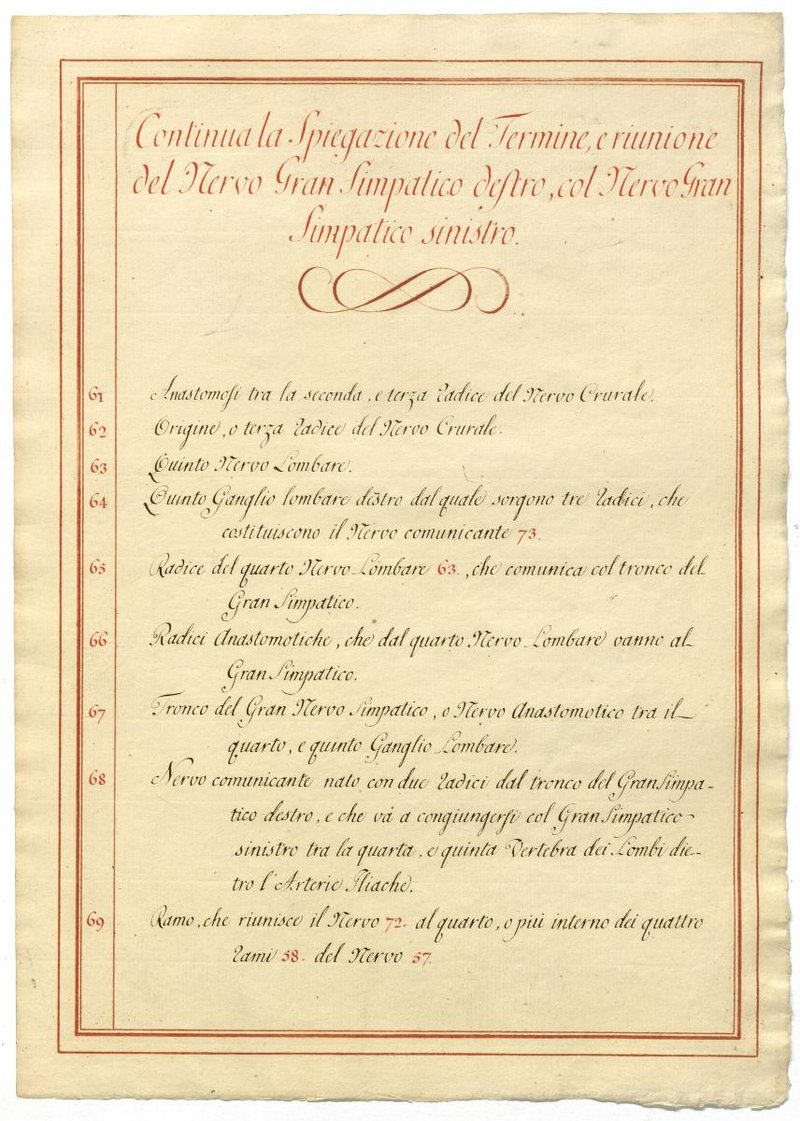 Continua la Spiegazione del Termine, e riunione
del Nervo Gran Simpatico destro, col Nervo Gran
Simpatico sinistro.
61 Anastomosi tra la seconda, e terza radice del Nervo Crurale.
62 Origine, o terza radice del Nervo Crurale.
63 Quinto Nervo Lombare.
64 Quinto Ganglio lombare destro dal quale sorgono tre radici, che
costituiscono il Nervo comunicante 73.
65 Radice del quarto Nervo Lombare 63., che comunica col tronco del
Gran Simpatico.
66 Radici Anastomotiche, che dal quarto Nervo Lombare vanno al
Gran Simpatico.
67 Tronco del Gran Nervo Simpatico, o Nervo Anastomotico tra il
quarto, e quinto Ganglio Lombare.
68 Nervo comunicante nato con due radici dal tronco del Gran Simpa-
tico destro, e che và a congiungersi col Gran Simpatico
sinistro tra la quarta, e quinta Vertebra dei Lombi die-
tro l'Arterie Iliache.
69 Ramo, che riunisce il Nervo 72. al quarto, o più interno dei quattro
rami 58. del Nervo 57.